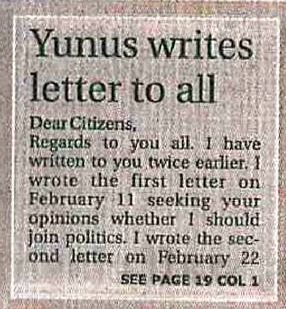 Yunus writes
letter to all
Dear Citizens,
Regards to you all. I have
written to you twice earlier. I
wrote the first letter on
February 11 seeking your
opinions whether I should
join politics. I wrote the sec-
ond letter on February 22
SEE PAGE 19 COL 1